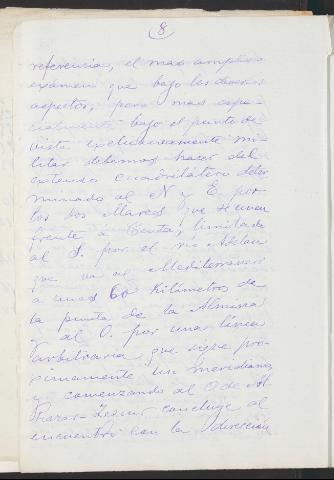 8
referencia, el mas amplio
examen que bajo los diversos
aspectos, pero mas espe-
cialmente bajo el punto de
vista exclusivamente mi-
litar debemos hacer del
extenso cuadrilátero deter
minado al N y E. por
los dos Mares que
frente á Ceuta; limitado
al S. por el rio
que va al Mediterraneo
a unos 60 Kilómetros de
la punta de la Almina
y al O. por una linea
arbitraria que sigue pro-
ximamente un meridiano
y comenzando al O de
concluye al
encuentro con la direccion